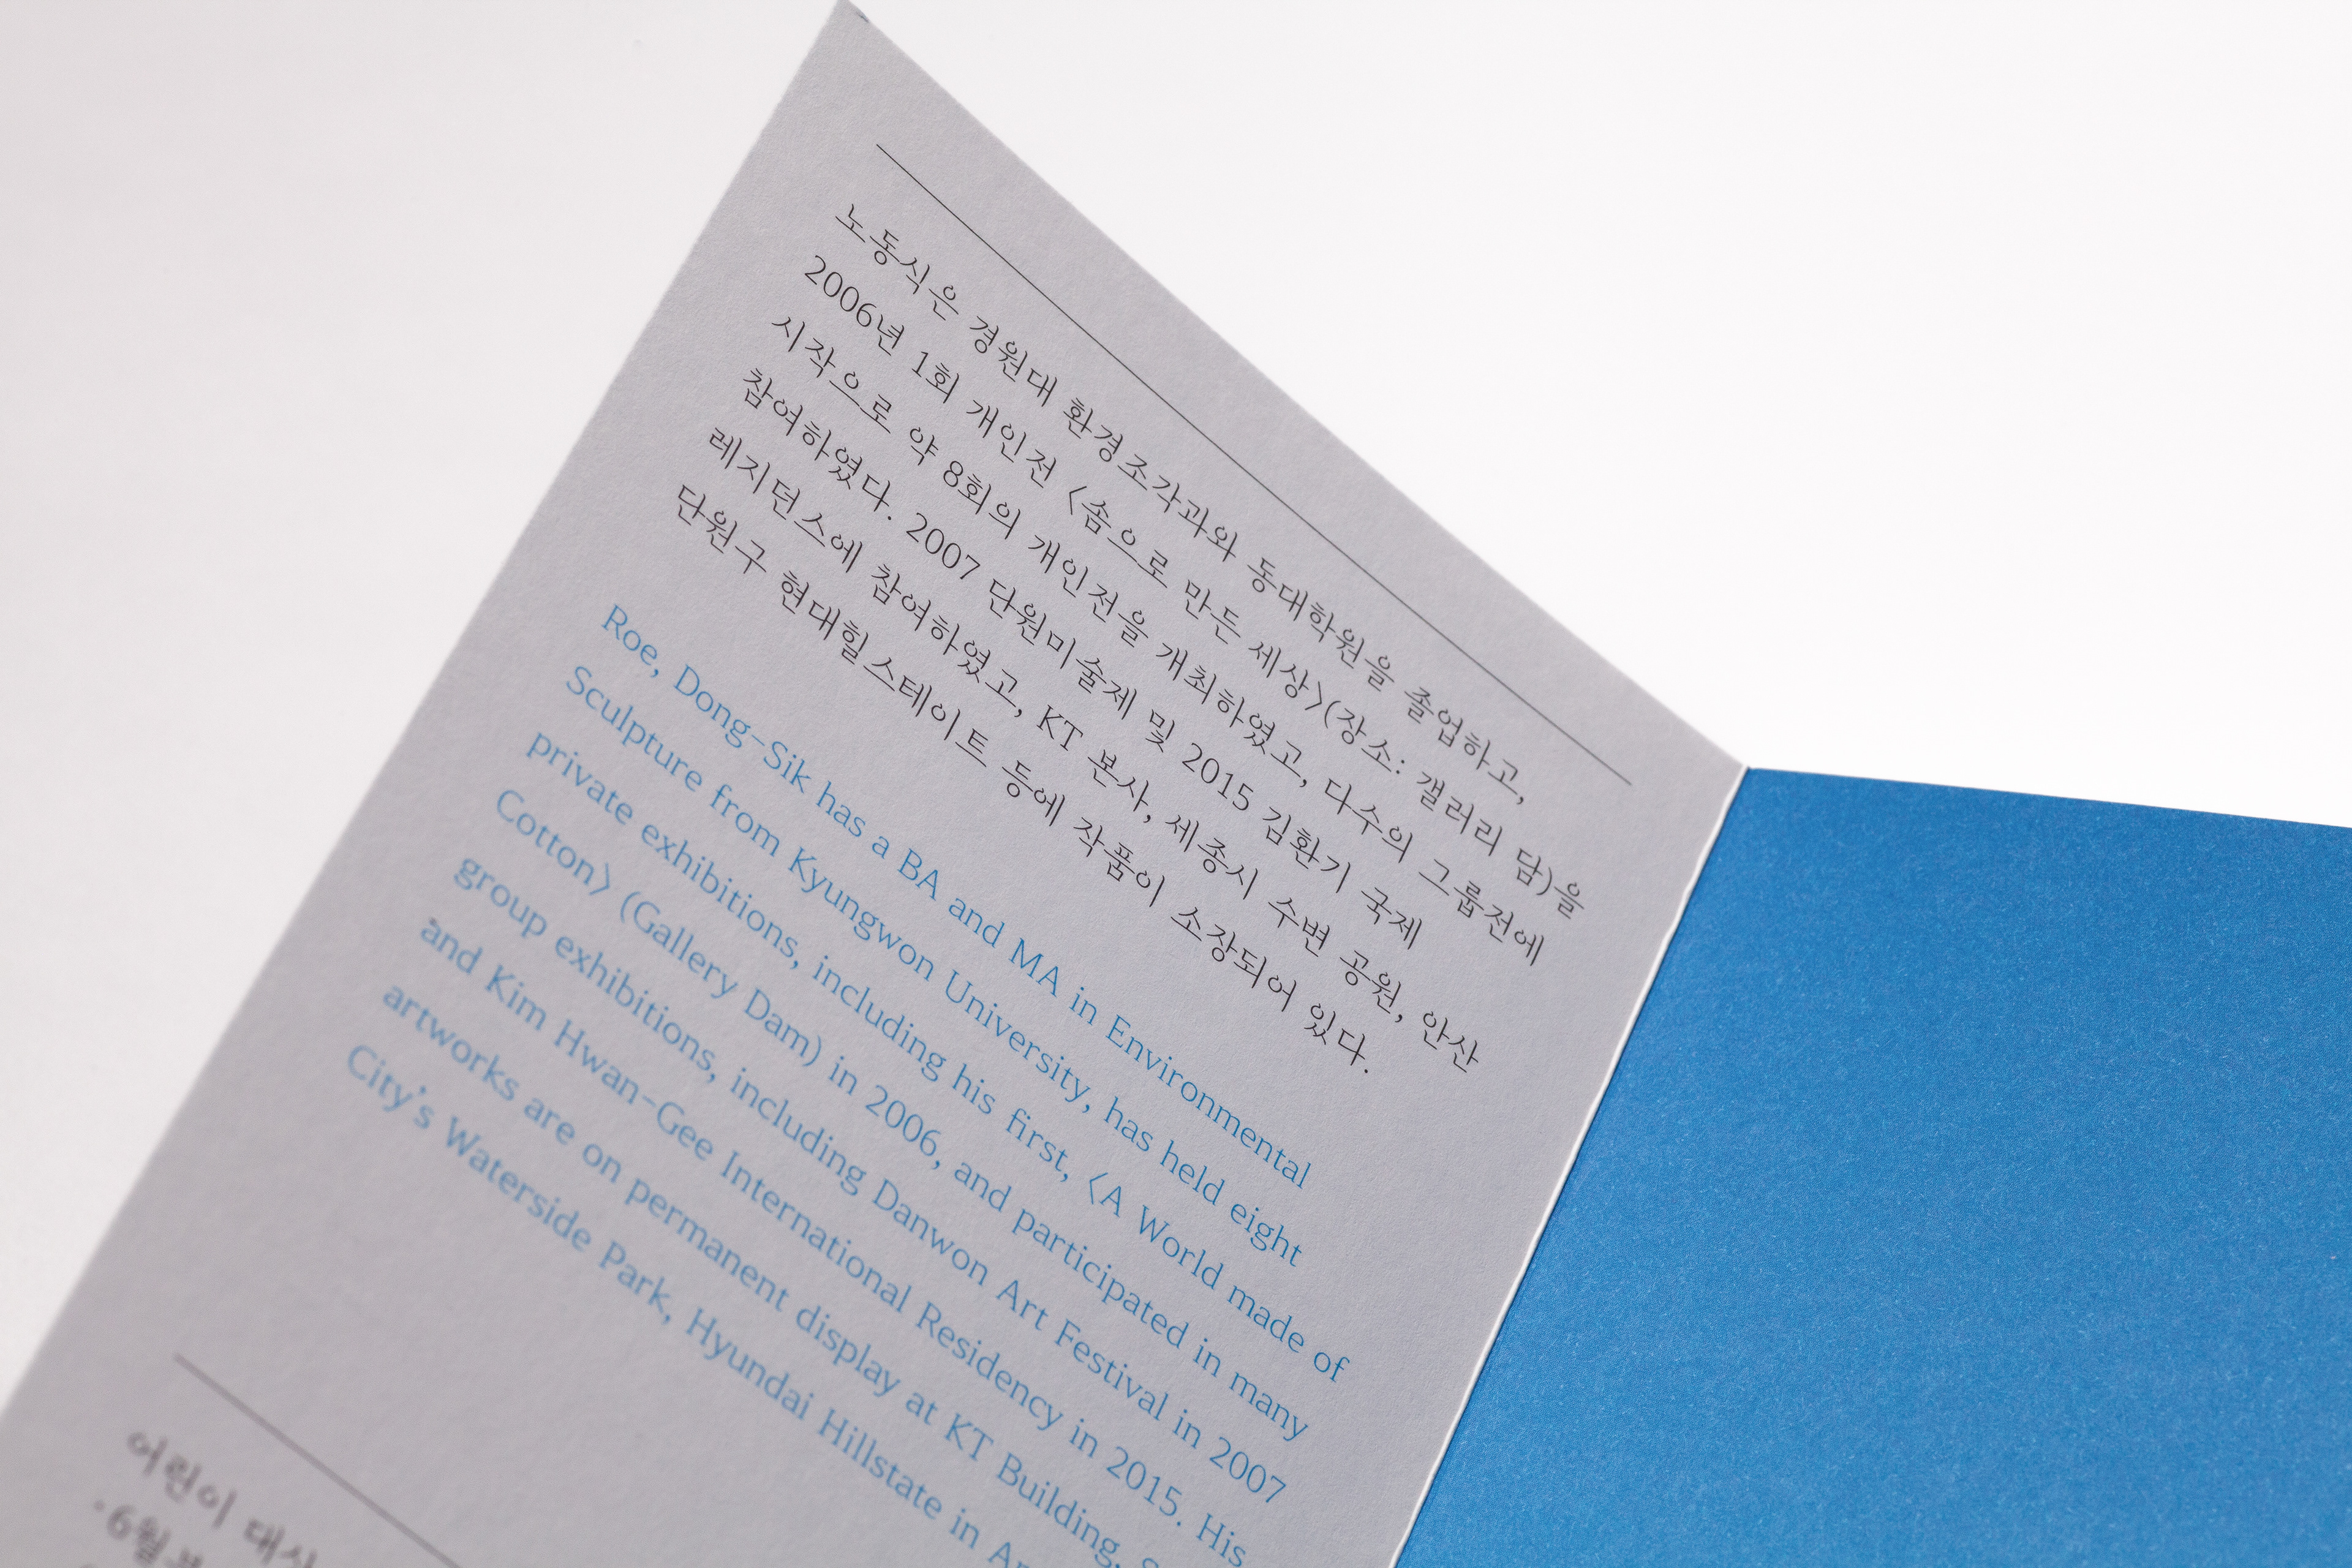 노동식은 경원대 환경조각과와 동대학원을 졸업하고,
2006년 1회 개인전 〈솜으로 만든 세상〉(장소: 갤러리 담)을
시작으로 약 8회의 개인전을 개최하였고, 다수의 그룹전에
참여하였다. 2007 단원미술제 및 2015 김환기 국제
레지던스에 참여하였고, KT 본사, 세종시 수변 공원, 안산
단원구 현대힐스테이트 등에 작품이 소장되어 있다.
Roe, Dong-Sik has a BA and MA in Environmental
Sculpture from Kyungwon University, has held eight
private exhibitions, including his first, 〈A World made of
Cotton〉 (Gallery Dam) in 2006, and participated in many
group exhibitions, including Danwon Art Festival in 2007
and Kim Hwan-Gee International Residency in 2015. His
artworks are on permanent display at KT Building,
City's Waterside Park, Hyundai Hillstate in
어린이 대상
·6월